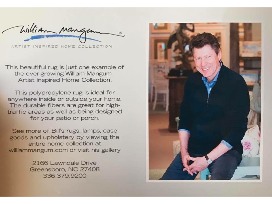 William Mangum
ARTIST INSPIRED HOME COLLECTION
This beautiful rug is just one example of
the ever growing William Mangum
Artist Inspired Home Collection.
This polypropylene rug is ideal for
anywhere inside or outside your home.
The durable fibers are great for high-
traffic areas as well as being designed
for your patio or porch.
See more of Bill's rugs, lamps, case
goods and upholstery by viewing the
entire home collection at
williammangum.com or visit his gallery
2166 Lawndale Drive
Greensboro, NC 27408
336.379.9200